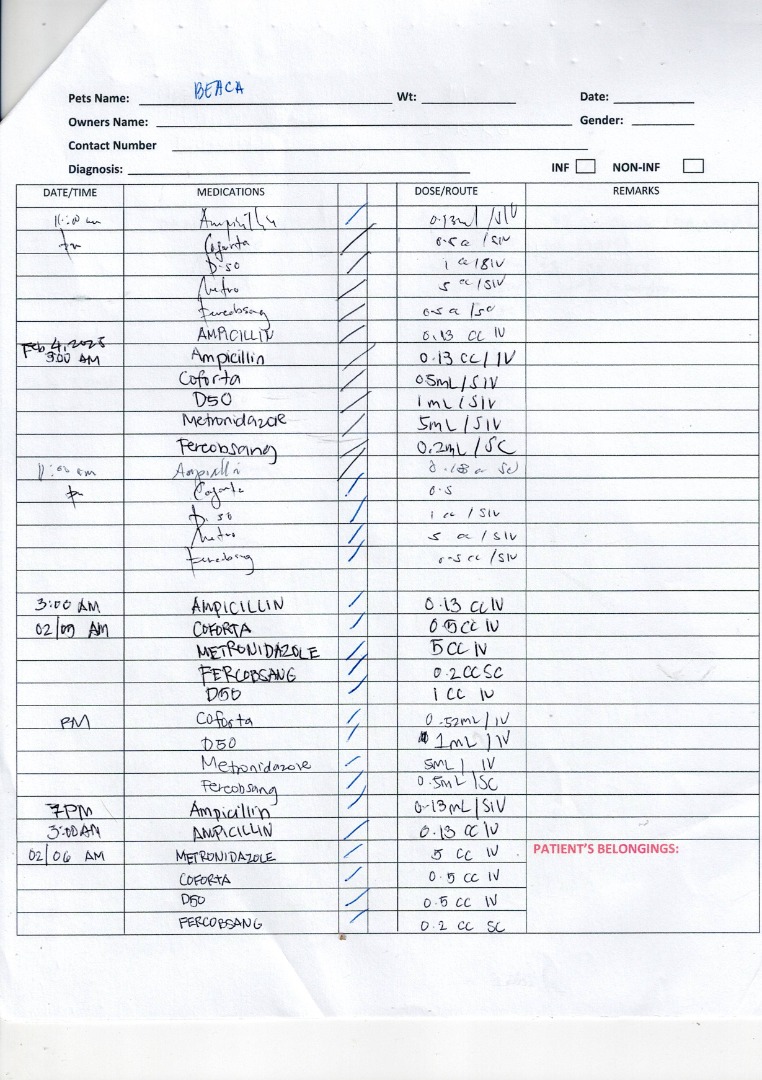 Pets Name: BEACA Wt: Date:
Owners Name: Gender:
Contact Number
Diagnosis: INF NON-INF
DATE/TIME MEDICATIONS DOSE/ROUTE REMARKS
11:00 am 0.13ml /SIV
Coforta 0.5 cc /SIV
D-50 1 cc /SIV
Metro 5 cc /SIV
Fercobsang 0.5 cc /SC
AMPICILLIN 0.13 CC IV
Feb 4, 2025
3:00 AM Ampicillin 0.13 CC/ IV
Coforta 0.5mL/SIV
D50 1mL/SIV
Metronidazole 5mL/SIV
Fercobsang 0.2mL/SC
11:00 am Ampicilli
Coforta 0.5
D.50 1 cc / SIV
Metro 5 cc / SIV
Fercobsang 0.5 cc /SIV
3:00 AM AMPICILLIN 0.13 CC IV
02/05 AM COFORTA 0.5CC IV
METRONIDAZOLE 5CC IV
FERCOBSANG 0.2CC SC
D50 1 CC IV
PM Coforta 0.52mL/IV
D50 1mL/IV
Metronidazole 5mL/ IV
Fercobsang 0.5mL/SC
7PM Ampicillin 0.13mL/SIV
3:00AM AMPICILLIN 0.13 CC IV
02/06 AM METRONIDAZOLE 5 CC IV PATIENT'S BELONGINGS:
COFORTA 0.5 CC IV
D50 0.5 CC IV
FERCOBSANG 0.2 CC SC